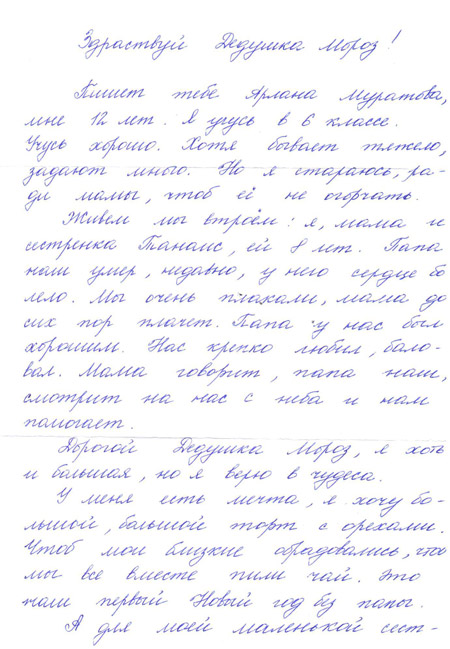 Здраствуй Дедушка Мороз!
Пишет тебе Арлана Муратова,
мне 12 лет. Я учусь в 6 классе.
Учусь хорошо. Хотя бывает тяжело,
задают много. Но я стараюсь, ра-
ди мамы, чтоб её не огорчать.
Живем мы втроём: я, мама и
сестренка Танаис, ей 8 лет. Папа
наш умер, недавно, у него сердце бо
лело. Мы очень плакали, мама до
сих пор плачет. Папа у нас был
хорошим. Нас крепко любил, бало-
вал. Мама говорит, папа наш,
смотрит на нас с неба и нам
помогает.
Дорогой Дедушка Мороз, я хоть
и большая, но я верю в чудеса.
У меня есть мечта, я хочу бо-
льшой, большой торт с орехами.
Чтоб мои близкие обрадовались, что
мы все вместе пили чай. Это
наш первый Новый год без папы.
А для моей маленькой сест-